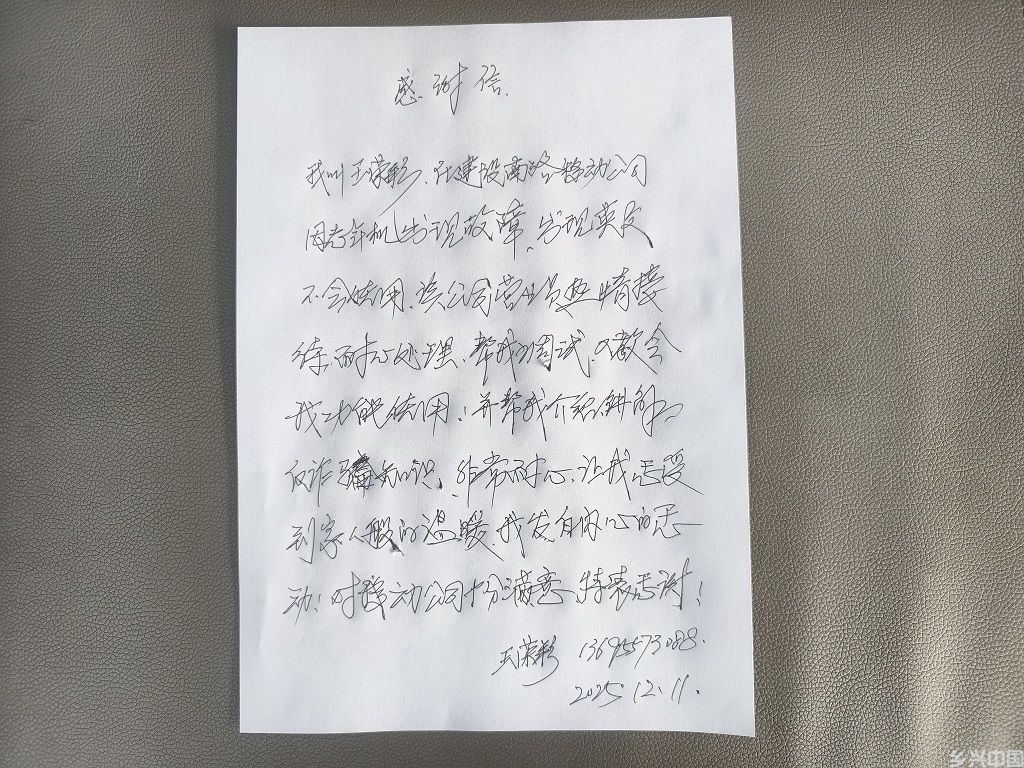 感谢信.
我叫王荣彩、在建设南路移动公司
因老年机出现故障、出现丢失
不会使用、该公司营业员热情接
待、耐心处理、帮我调试、又教会
我功能使用、并帮我介绍讲解
反诈骗知识、非常耐心、让我感受
到家人般的温暖、我发自内心的感
动！对移动公司十分满意 特表感谢！
王荣彩 13695573088.
2025.12.11.
乡兴中国